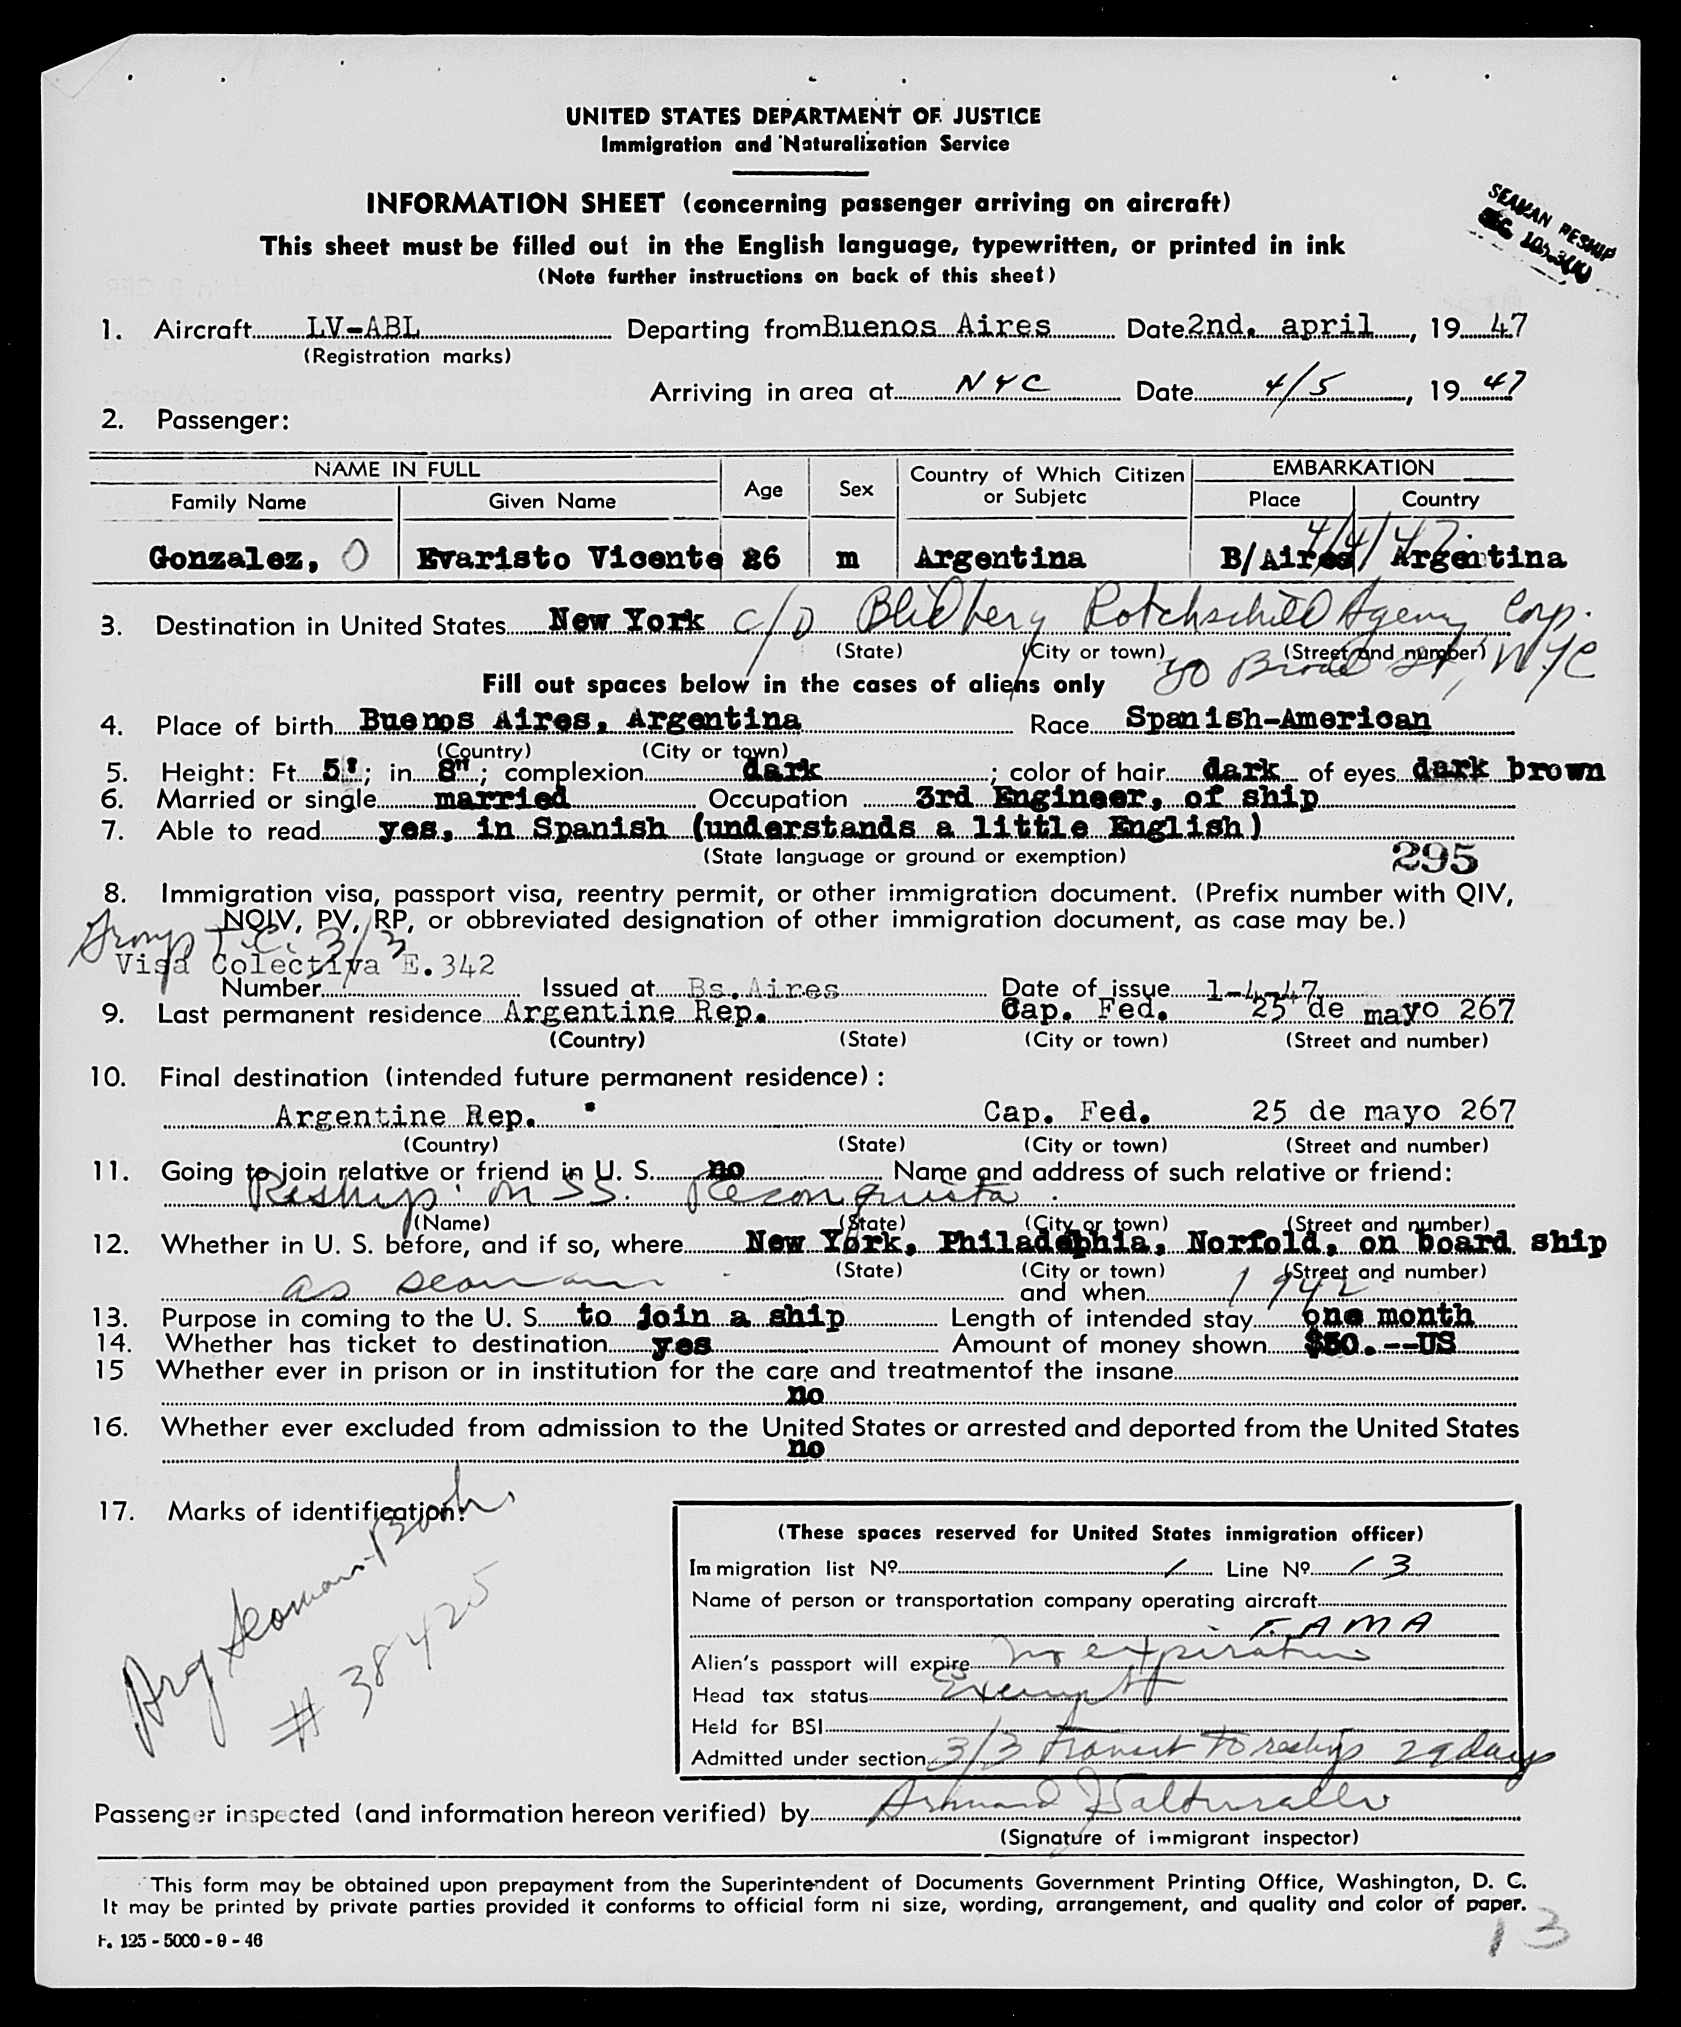 UNITED STATES DEPARTMENT OF JUSTICE
Immigration and Naturalization Service
INFORMATION SHEET (concerning passenger arriving on aircraft)
SEAMAN RESHIP
This sheet must be filled out in the English language, typewritten, or printed in ink
(Note further instructions on back of this sheet)
1. Aircraft LV-ABL Departing from Buenos Aires Date 2nd. april, 19 47
(Registration marks)
Arriving in area at NYC Date 4/5, 19 47
2. Passenger:
NAME IN FULL Age Sex Country of Which Citizen or Subjetc EMBARKATION
Family Name Given Name Place Country
4/4/47
Gonzalez, O Evaristo Vicente 26 m Argentina B/Aires Argentina
3. Destination in United States New York c/o Blidberg Rotchschild Agency Corp.
(State) (City or town) (Street and number)
80 Broad St, NYC
Fill out spaces below in the cases of aliens only
4. Place of birth Buenos Aires, Argentina Race Spanish-American
(Country) (City or town)
5. Height: Ft 5'; in 8"; complexion dark; color of hair dark of eyes dark brown
6. Married or single married Occupation 3rd Engineer, of ship
7. Able to read yes, in Spanish (understands a little English)
(State language or ground or exemption)
295
8. Immigration visa, passport visa, reentry permit, or other immigration document. (Prefix number with QIV,
NQIV, PV, RP, or obbreviated designation of other immigration document, as case may be.)
Group T.C. 3/3
Visa Colectiva E.342
Number Issued at Bs.Aires Date of issue 1-4-47
9. Last permanent residence Argentine Rep. Cap. Fed. 25 de mayo 267
(Country) (State) (City or town) (Street and number)
10. Final destination (intended future permanent residence):
Argentine Rep. Cap. Fed. 25 de mayo 267
(Country) (State) (City or town) (Street and number)
11. Going to join relative or friend in U. S. no Name and address of such relative or friend:
Reship on SS. Reconquista.
(Name) (State) (City or town) (Street and number)
12. Whether in U. S. before, and if so, where New York, Philadephia, Norfold, on board ship
(State) (City or town) (Street and number)
as seaman - and when 1942
13. Purpose in coming to the U. S. to join a ship Length of intended stay one month
14. Whether has ticket to destination yes Amount of money shown $50.--US
15 Whether ever in prison or in institution for the care and treatmentof the insane
no
16. Whether ever excluded from admission to the United States or arrested and deported from the United States
no
17. Marks of identification:
Arg Seamans Book
# 38425
(These spaces reserved for United States inmigration officer)
Immigration list Nº 1 Line Nº 13
Name of person or transportation company operating aircraft
F.A.M.A
Alien's passport will expire no expiration
Head tax status Exempt
Held for BSI
Admitted under section 3/3 transit to reship 29 days
Passenger inspected (and information hereon verified) by Armand J
(Signature of immigrant inspector)
This form may be obtained upon prepayment from the Superintendent of Documents Government Printing Office, Washington, D. C.
It may be printed by private parties provided it conforms to official form ni size, wording, arrangement, and quality and color of paper.
F. 125 - 5000 - 9 - 46
13